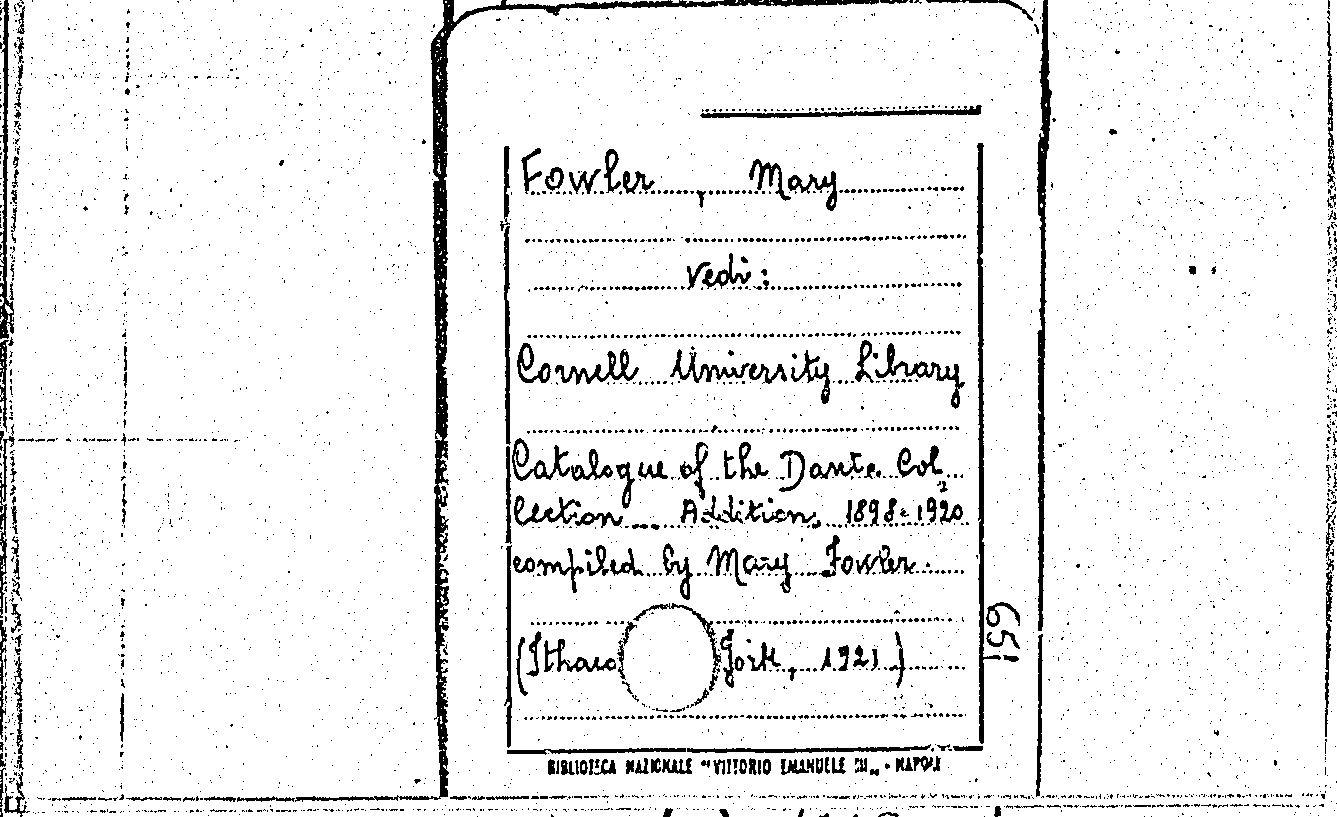 Fowler, Mary
vedi:
Cornell University Library
Catalogue of the Dante Col
lection ... Additions 1898-1920
compiled by Mary Fowler.
(Ithaca York, 1921)
651
BIBLIOTECA NAZIONALE "VITTORIO EMANUELE III" - NAPOLI